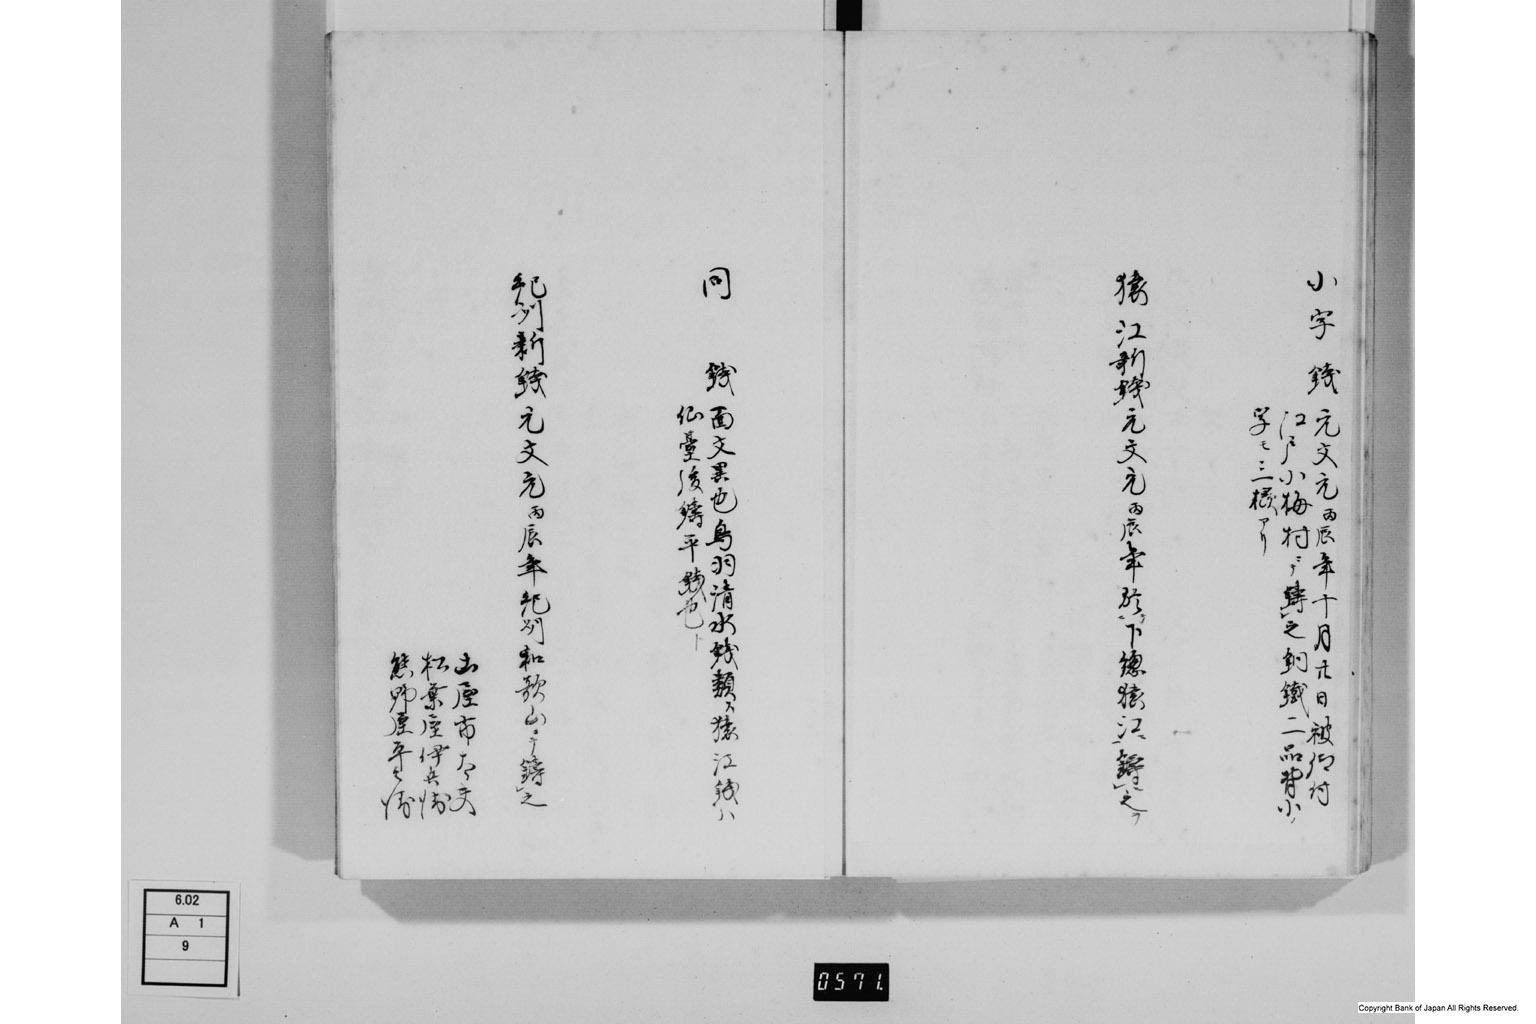 小字銭 元文元丙辰年十月廿日被仰付
江戸小梅村ニテ鋳之銅鐵二品背小ノ
字モ二様アリ
猿江新銭 元文元丙辰年於下總猿江ニ鋳之
同 銭 面文異也鳥羽清水銭類ス猿江銭ハ
仙臺後鋳平銭也ト
紀州新銭 元文元丙辰年紀州和歌山ニテ鋳之
屋市太夫
松葉屋伊兵衛
熊野屋平七
6.02
A 1
9
0571.
Copyright Bank of Japan All Rights Reserved.